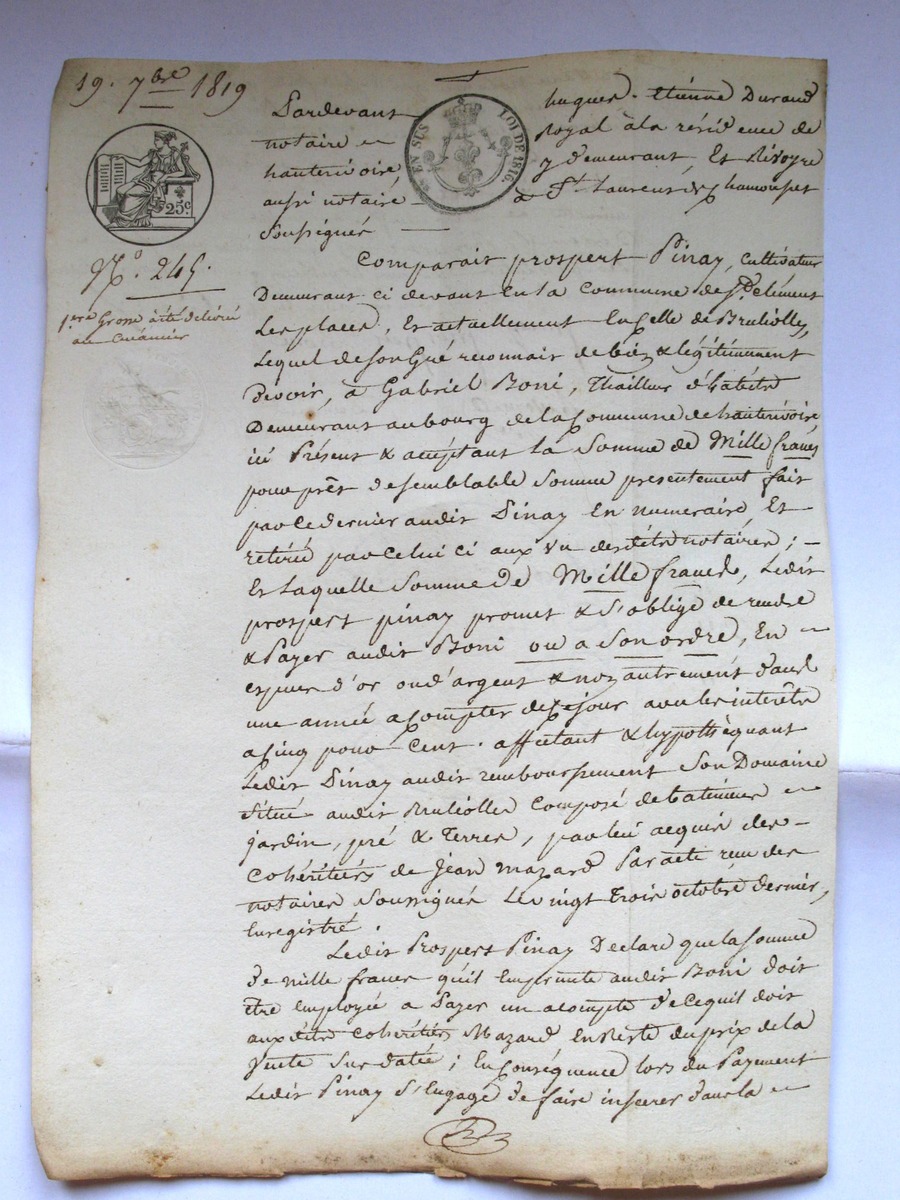 19. 7bre 1819
Pardevant hugues - etienne Durand
notaire royal à la résidence de
hauterivoire y demeurant, Et Rivoyre
aussi notaire à St. Laurent de Chamousset
Soussignés
EN SUS LOI DE 1816.
25c
No. 245.
1ere Grosse à été délivrée
au Créancier
Comparait prospert Pinay, cultivateur
Demeurant ci devant en la Commune de St. Clément
Les places, Et actuellement En Celle de Brulïolles,
Lequel de Son Gré reconnait de bien & légitimement
Devoir, à Gabriel Boni, Thailleur d'habits
Demeurant au bourg de la Commune de hauterivoire
ici Présent & acceptant La Somme de Mille francs
pour prêt de semblable Somme presentement fait
par ce dernier audit Pinay En numeraire Et
retiré par Celui ci aux vu desdits notaires ; -
Et Laquelle Somme de Mille francs, Ledit
prospert pinay promet & S'oblige de rendre
& Payer audit Boni ou a Son ordre, En
espèces d'or ou d'argent & non autrement dans
une année a Compter de ce jour avec les intérêts
a Cinq pour Cent. affectant & hypothèquant
Ledit Pinay audit remboursement Son Domaine
Situé audit Brulïolles Composé de batiments
jardin, pré & Terres, par lui acquis des -
Cohéritiers de Jean Mazard Par acte reçu des
notaires Soussignés Le vingt Trois octobre dernier,
Enregistré.
Ledit Prospert Pinay Déclare que la Somme
de mille francs qu'il Emprunte audit Boni doit
être employée a Payer un acompte de ce qu'il doit
aux dits Cohéritiers Mazard En Reste du prix de la
Vente Sus datée ; En Conséquence lors du Payement
Ledit Pinay S'Engage de faire inserer dans la